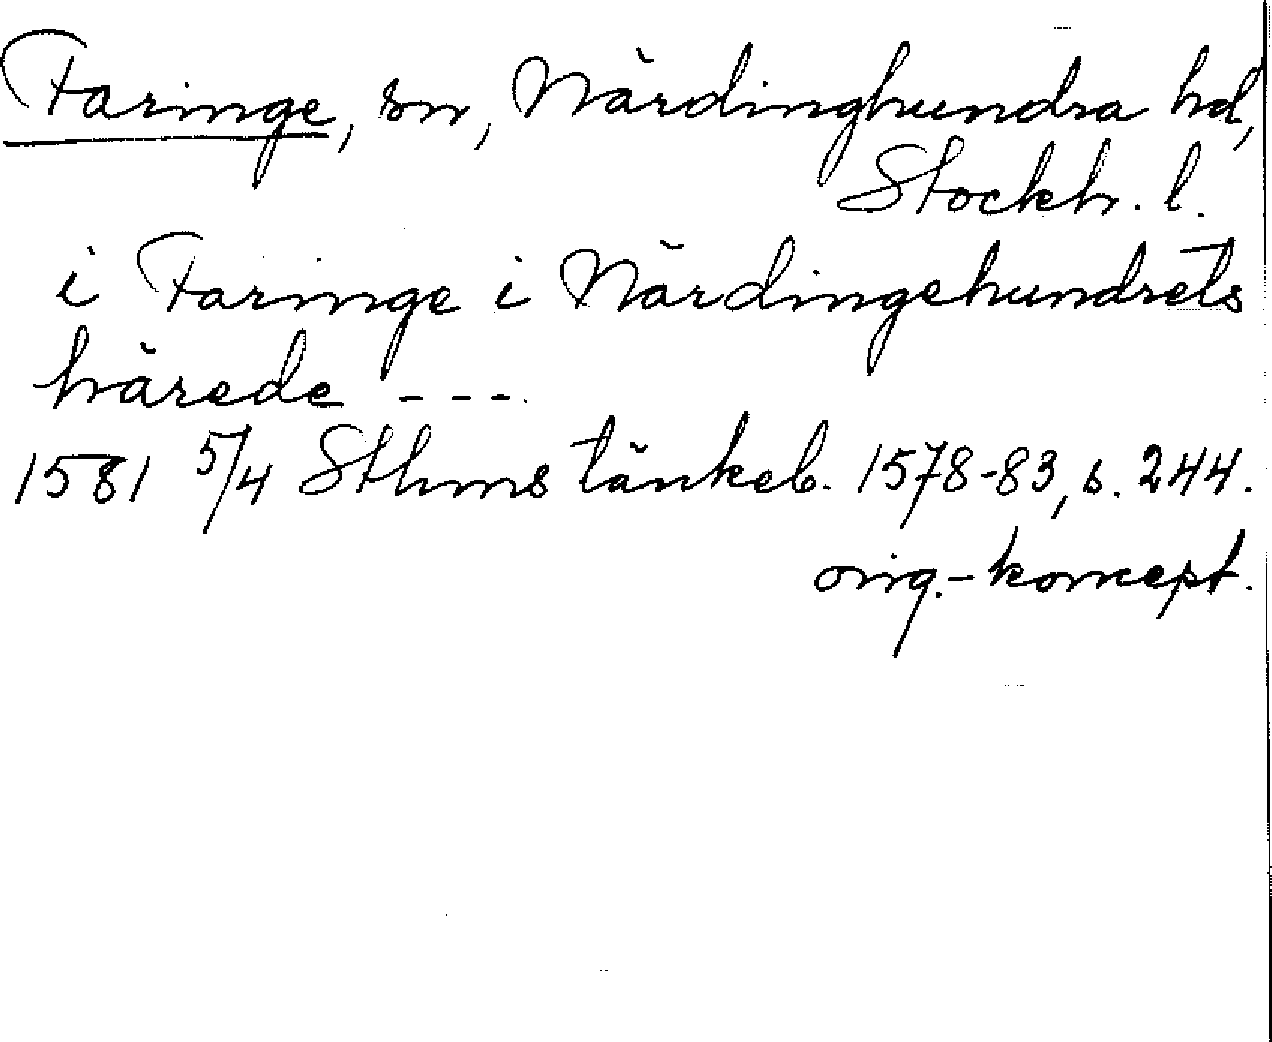 Faringe, sn, Närdinghundra hd,
Stockh. l.
i Faringe i Närdingehundrets
härede ---.
1581 5/4 Sthms tänkeb. 1578-83, s. 244.
orig.-koncept.